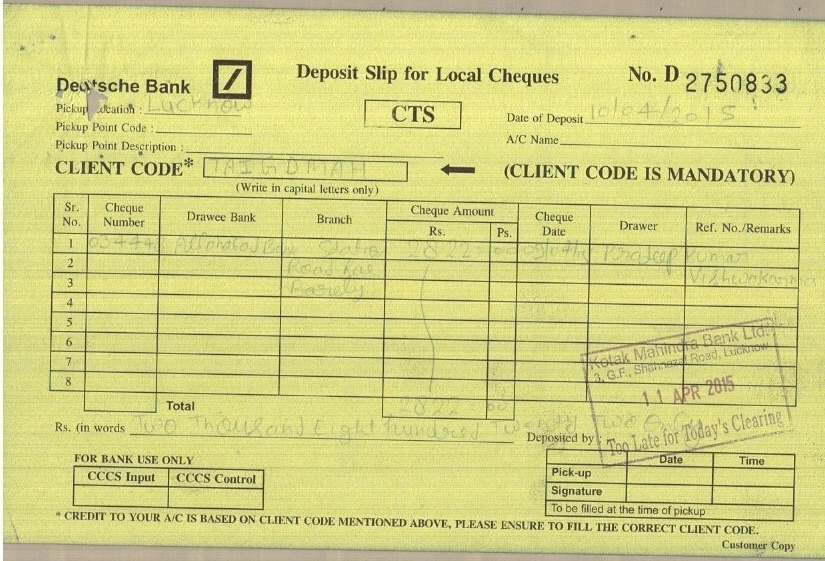 Deutsche Bank
Deposit Slip for Local Cheques
No. D 2750833
Pickup Location : Lucknow
CTS
Date of Deposit 10/04/2015
Pickup Point Code :
A/C Name
Pickup Point Description :
CLIENT CODE* TAIGDMAH
(CLIENT CODE IS MANDATORY)
(Write in capital letters only)
Sr. No. Cheque Number Drawee Bank Branch Cheque Amount Rs. Ps. Cheque Date Drawer Ref. No./Remarks
1 Allahabad Bank Station 2822 Pradeep Kumar
2 Road Rae Vishwakarma
3 Barely
4
5
6
7
8
Total 2822 00
Rs. (in words Two Thousand Eight hundred Twenty Two Only
Deposited by :
Kotak Mahindra Bank Ltd.
3, G.F., Shahnazaf Road, Lucknow
11 APR 2015
Too Late for Today's Clearing
FOR BANK USE ONLY
CCCS Input CCCS Control
Date Time
Pick-up
Signature
To be filled at the time of pickup
* CREDIT TO YOUR A/C IS BASED ON CLIENT CODE MENTIONED ABOVE, PLEASE ENSURE TO FILL THE CORRECT CLIENT CODE.
Customer Copy